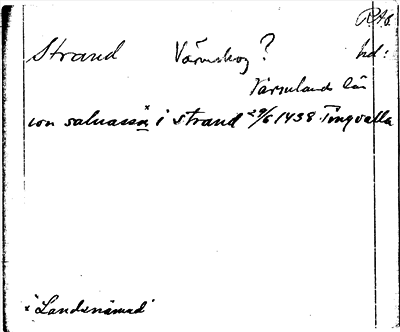 RAO.
Strand Värmskog? hd:
Värmlands län
von saluassä* i strand 29/6 1438 Tingvalla
*'Landsnämnd'